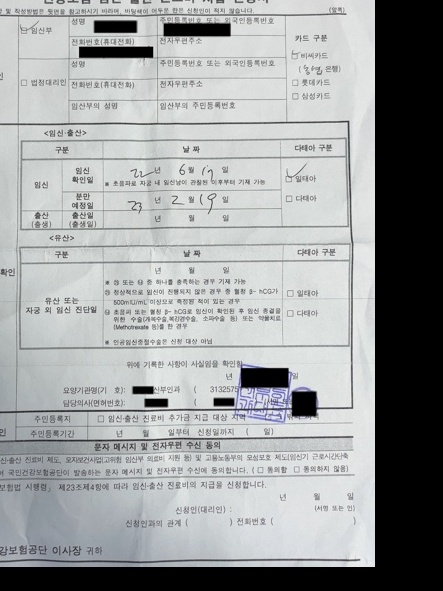 및 작성방법은 뒷면을 참고하시기 바라며, 바탕색이 어두운 란은 신청인이 적지 않습니다. (앞쪽)
임산부
성명
주민등록번호 또는 외국인등록번호
카드 구분
전화번호(휴대전화)
전자우편주소
비씨카드
( 은행)
법정대리인
성명
주민등록번호 또는 외국인등록번호
롯데카드
전화번호(휴대전화)
전자우편주소
삼성카드
임산부의 성명
임산부의 주민등록번호
<임신·출산>
구분 날 짜 다태아 구분
임신
임신 확인일
22 년 6 월 17 일
※ 초음파로 자궁 내 임신낭이 관찰된 이후부터 기재 가능
일태아
분만 예정일
23 년 2 월 19 일
다태아
출산 (출생)
출산일 (출생일)
년 월 일
<유산>
구분 날 짜 다태아 구분
확인
유산 또는
자궁 외 임신 진단일
년 월 일
※ ㉮ 또는 ㉯ 중 하나를 충족하는 경우 기재 가능
㉮ 정상적으로 임신이 진행되지 않은 경우 중 혈청 β- hCG가
500mIU/mL 이상으로 측정된 적이 있는 경우
㉯ 초음파 또는 혈청 β- hCG로 임신이 확인된 후 임신 종결을
위한 수술(개복수술,복강경수술, 소파수술 등) 또는 약물치료
(Methotrexate 등)를 한 경우
※ 인공임신중절수술은 신청 대상 아님
일태아
다태아
위에 기록한 사항이 사실임을 확인함
년 일
요양기관명(기 호): 산부인과 ( 3132575
담당의사(면허번호): (
주민등록지
임신·출산 진료비 추가금 지급 대상 지역
주민등록기간
년 월 일부터 신청일까지 ( 일)
문자 메시지 및 전자우편 수신 동의
신·출산 진료비 제도, 모자보건사업(고위험 임산부 의료비 지원 등) 및 고용노동부의 모성보호 제도(임신기 근로시간단축
국민건강보험공단이 발송하는 문자 메시지 및 전자우편 수신에 동의합니다. ( 동의함 동의하지 않음)
보험법 시행령」 제23조제4항에 따라 임신·출산 진료비의 지급을 신청합니다.
년 월 일
신청인(대리인) : (서명 또는 인)
신청인과의 관계 ( ) 전화번호 ( )
강보험공단 이사장 귀하